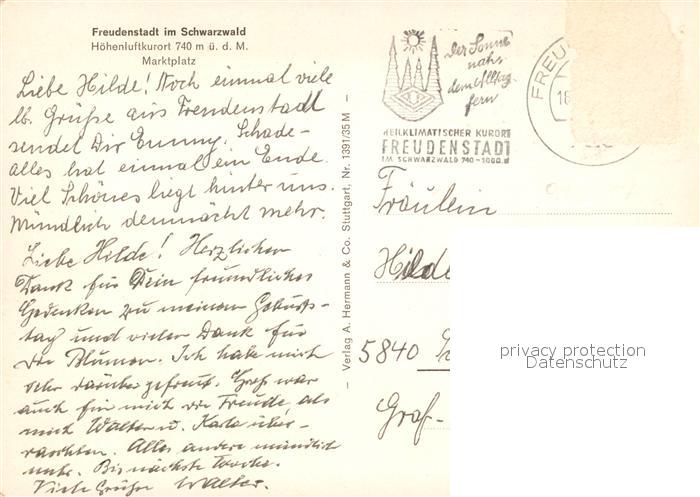 Freudenstadt im Schwarzwald
Höhenluftkurort 740 m ü. d. M.
Marktplatz
Liebe Hilde! Noch einmal viele
lb. Grüße aus Freudenstadt
sendet Dir Emmy. Schade-
alles hat einmal ein Ende.
Viel Schönes liegt hinter uns.
Mündlich demnächst mehr.
Liebe Hilde! Herzlichen
Dank für Dein freundliches
Gedenken zu meinem Geburts-
tag und vielen Dank für
die Blumen. Ich habe mich
sehr darüber gefreut. Groß war
auch für mich die Freude, als
mich Walter u. Karla über-
raschten. Alles andere mündlich
mehr. Bis nächste Woche.
Viele Grüße Walter.
– Verlag A. Hermann & Co. Stuttgart, Nr. 1391/35 M –
Der Sonne
nah-
dem Alltag
fern
HEILKLIMATISCHER KURORT
FREUDENSTADT
IM SCHWARZWALD 740-1000 M
FREU
18.
Fräulein
Hilde
5840
Graf-
privacy protection
Datenschutz